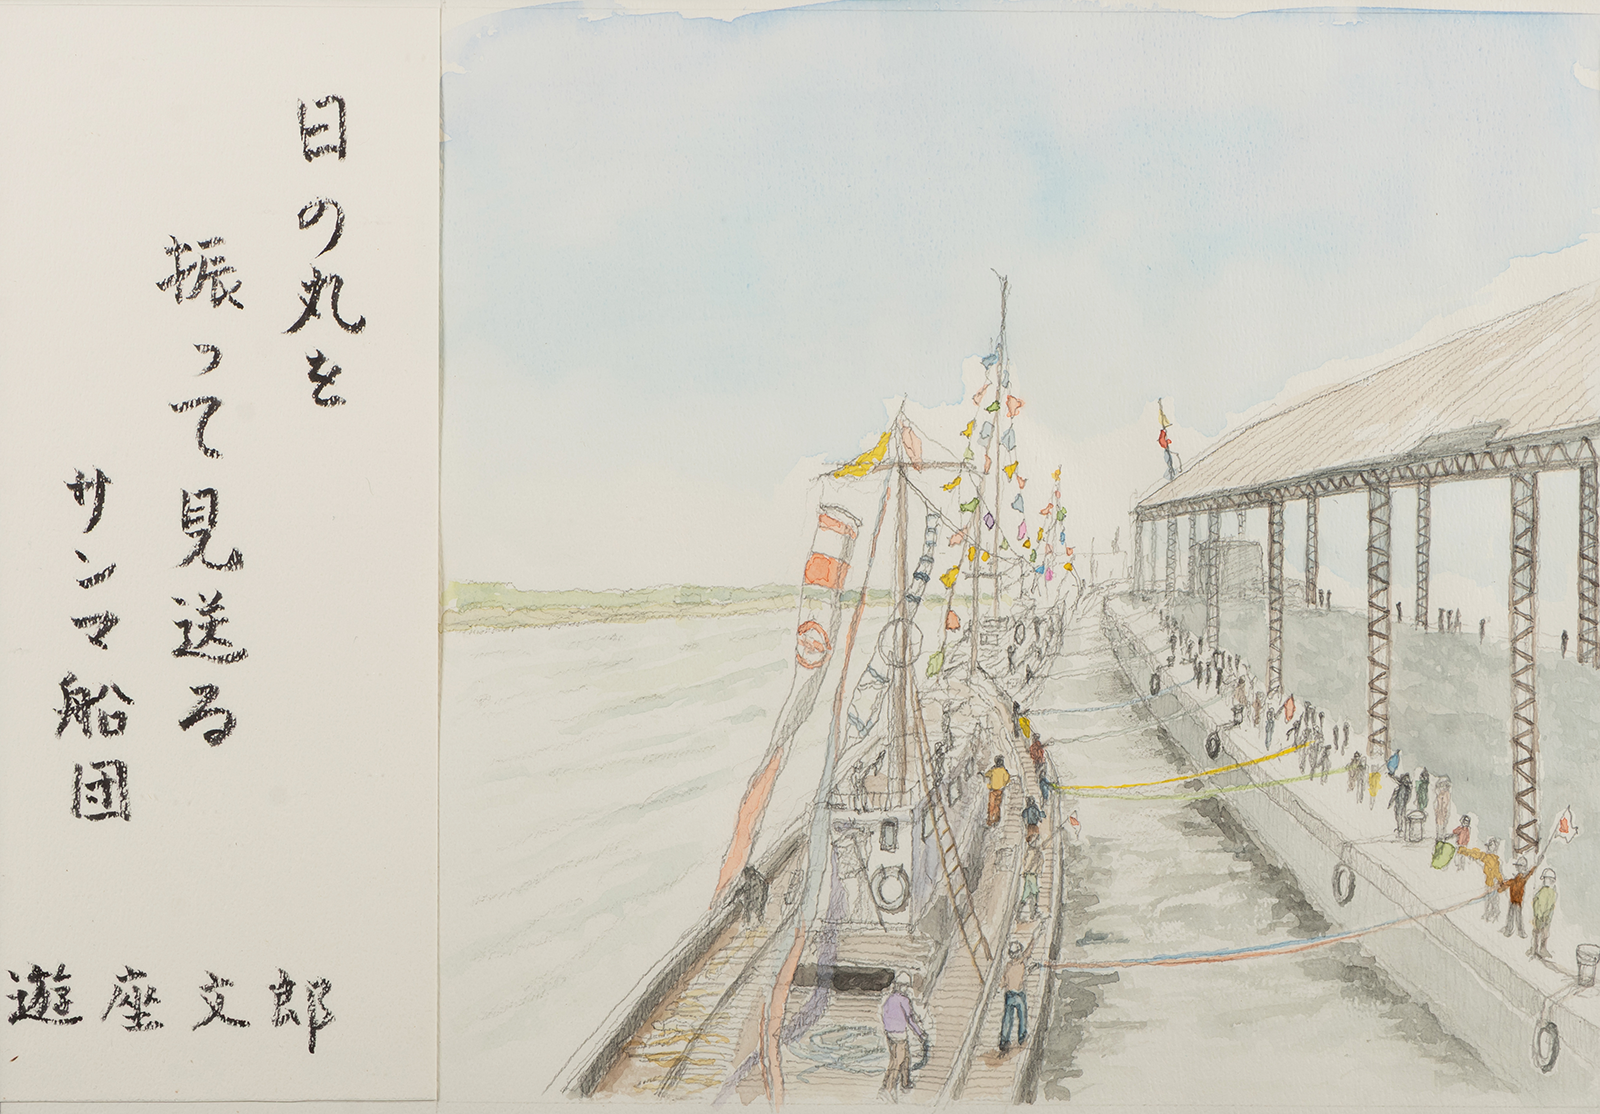 日の丸を
振って見送る
サンマ船団
遊座文郎